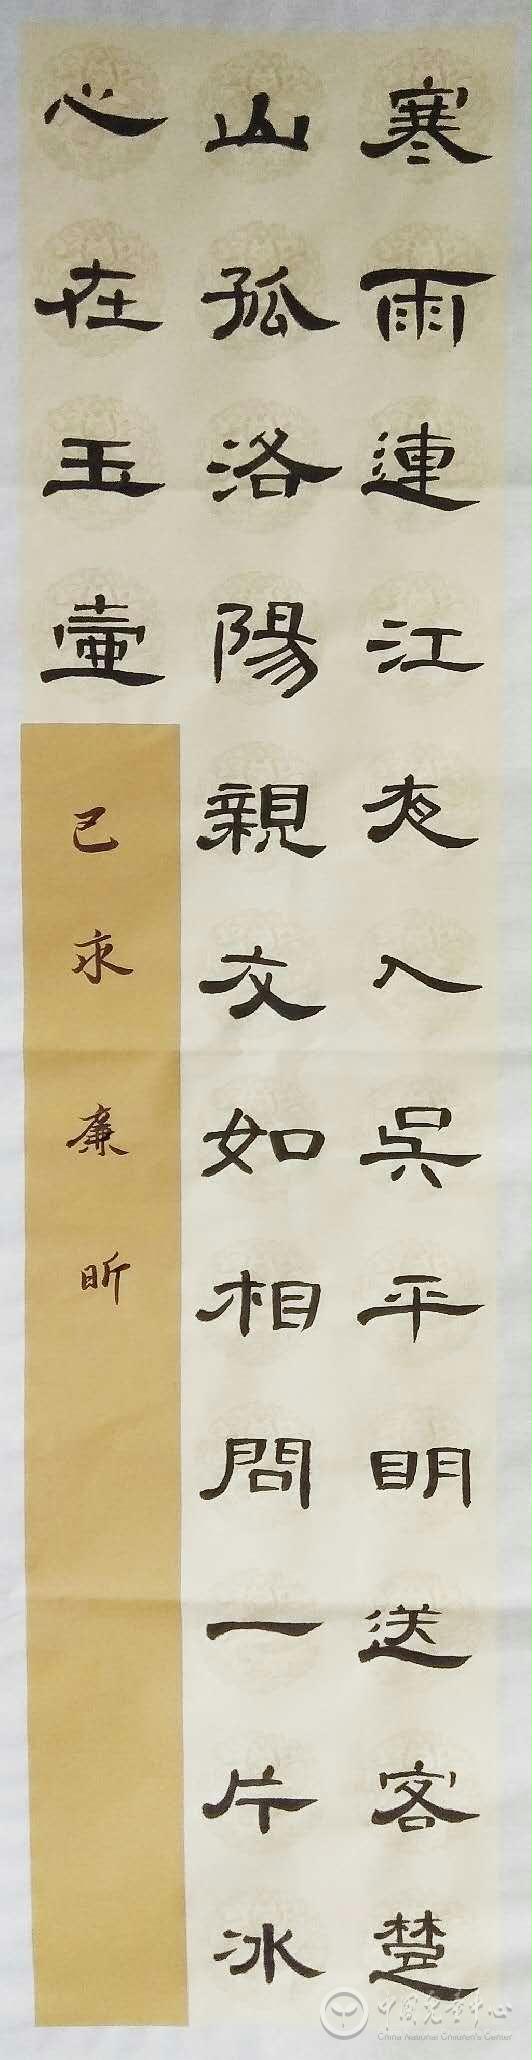 寒雨連江夜入吳平明送客楚
山孤洛陽親友如相問一片冰
心在玉壺
己亥 廉昕
中国儿童中心
China National Children's Center